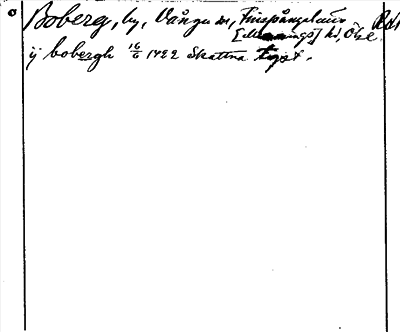 Boberg, by, Vånga sn, Finspångaläns
[Memmings] hd, Ög.
ij bobergh 16/6 1422 Skattna